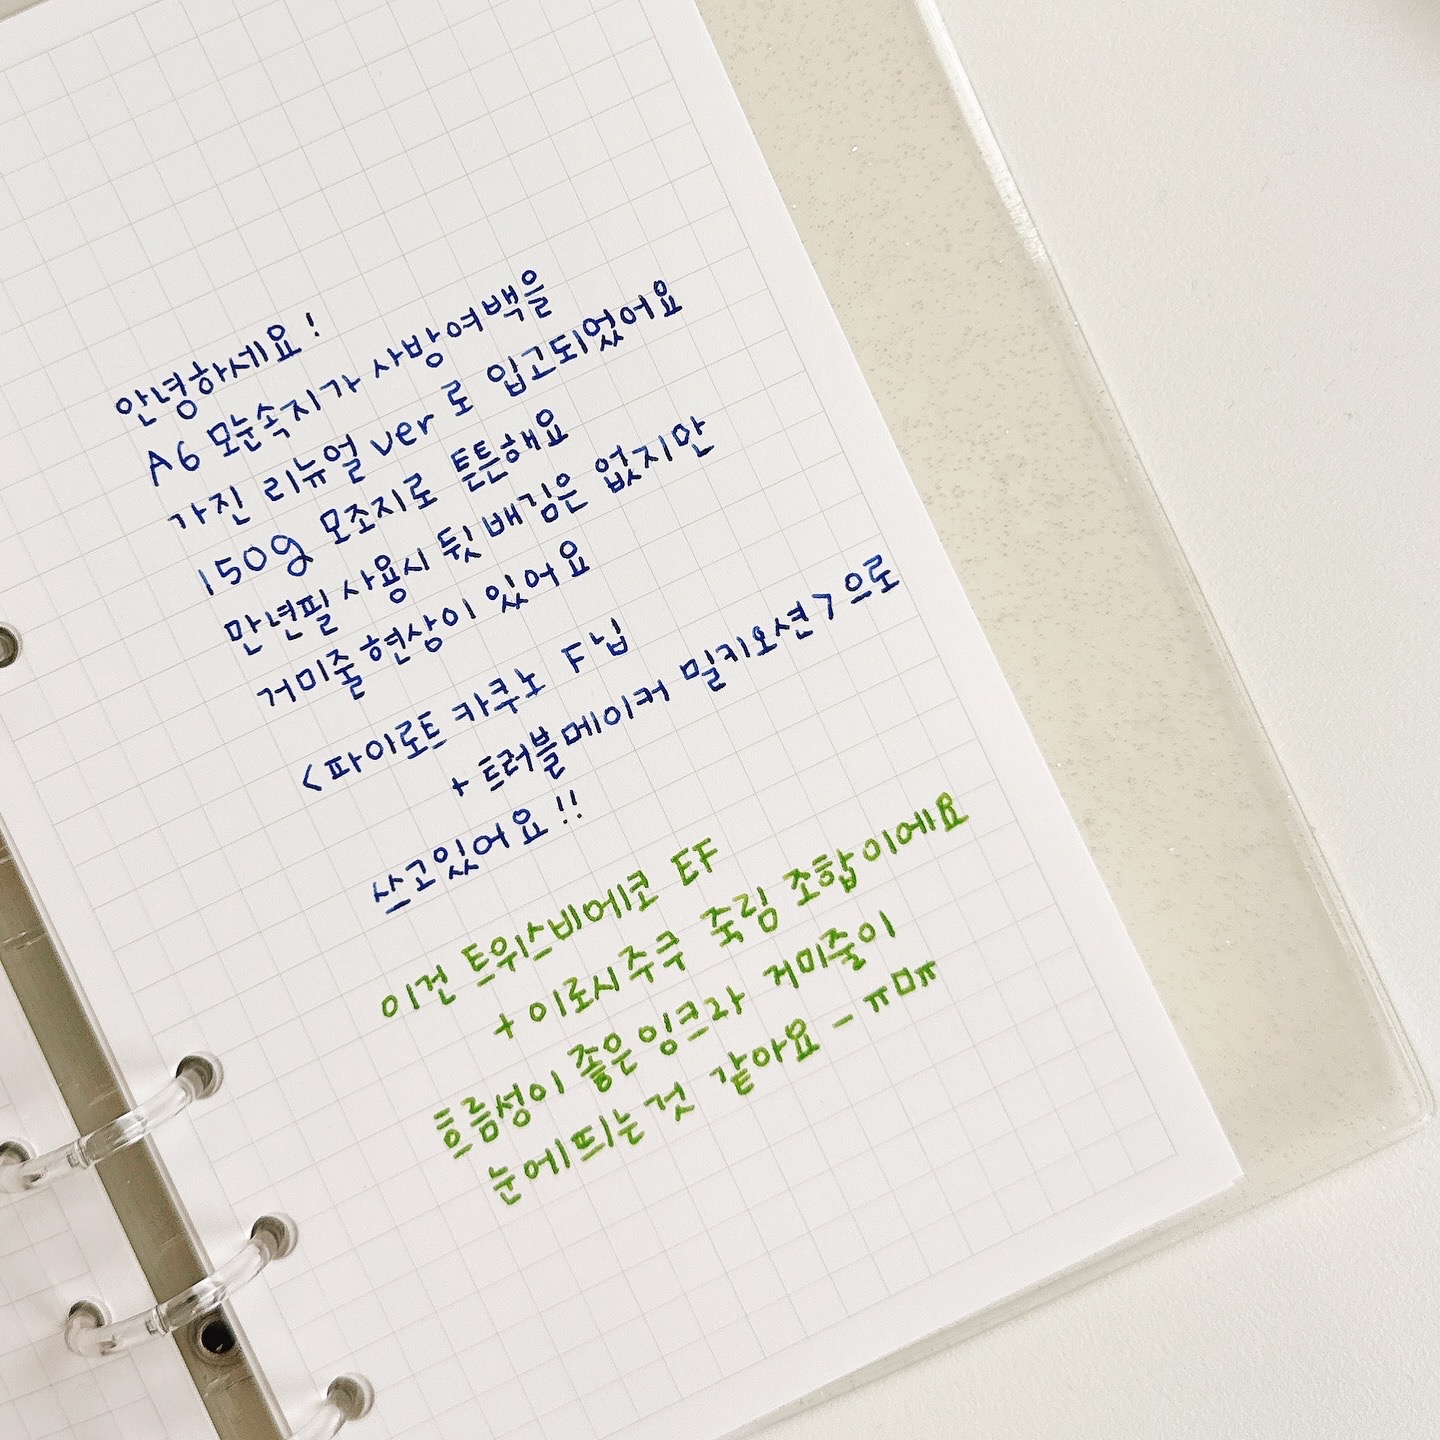 안녕하세요!
A6 모눈속지가 사방여백을
가진 리뉴얼 ver 로 입고되었어요
150g 모조지로 튼튼해요
만년필 사용시 뒷 배김은 없지만
거미줄현상이 있어요
<파이로트 카쿠노 F닙
+ 트러블메이커 밀키오션>으로
쓰고있어요!!
이건 트위스비에코 EF
+ 이로시주쿠 죽림 조합이에요
흐름성이 좋은잉크라 거미줄이
눈에띄는것 같아요 - ㅠㅁㅠ